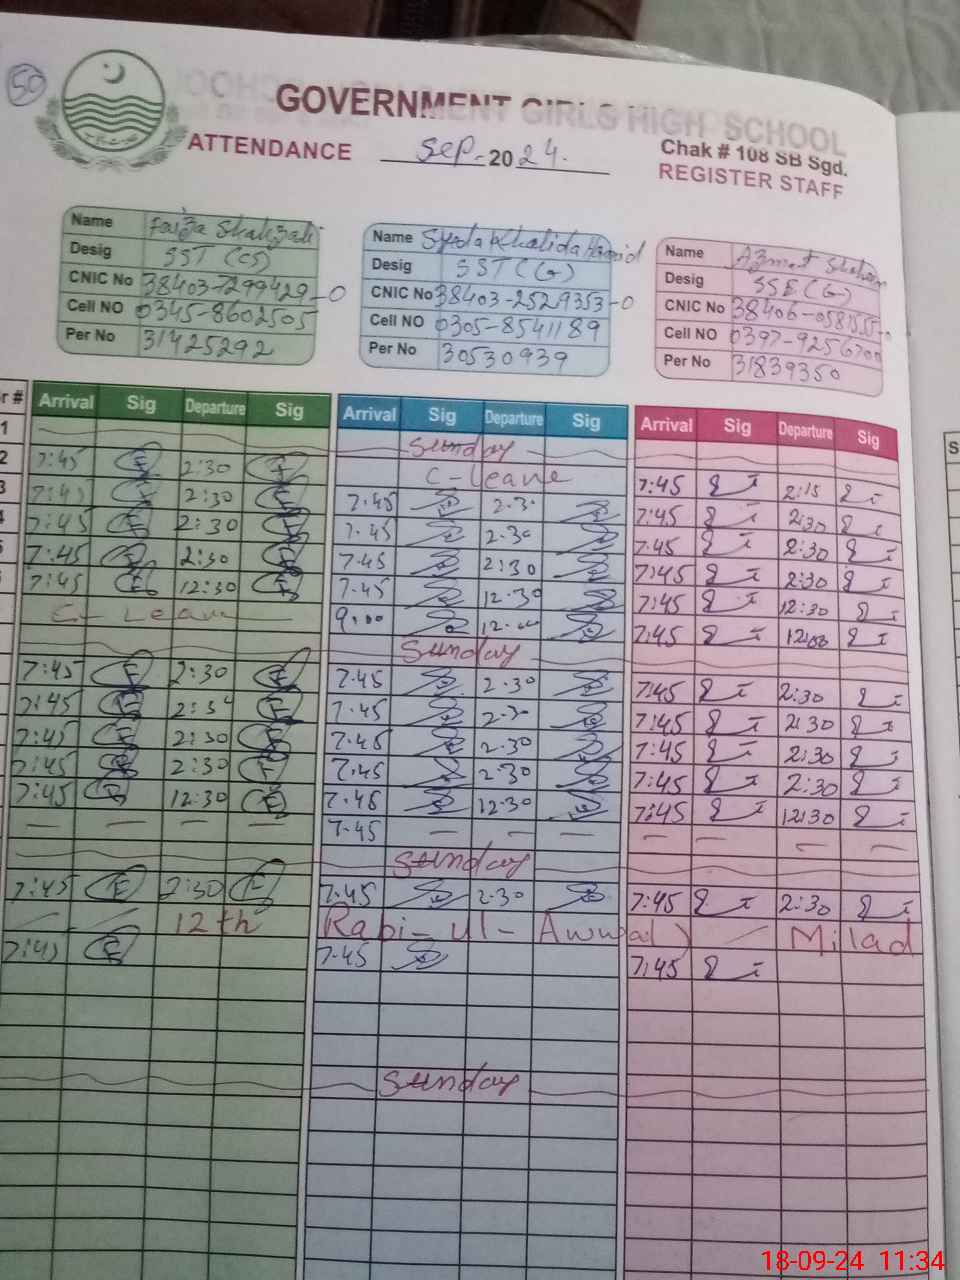 50
GOVERNMENT GIRLS HIGH SCHOOL
Chak # 108 SB Sgd.
ATTENDANCE Sep-2024.
REGISTER STAFF
Name Faiza Shahzadi
Desig SST (CS)
CNIC No 38403-7299429-0
Cell NO 0345-8602505
Per No 31425292
Name Syeda Khalida Hamid
Desig SST (G)
CNIC No 38403-2529353-0
Cell NO 0305-8541189
Per No 30530939
Name Azmat
Desig SSE (G)
CNIC No
Cell NO
Per No 31839350
r # Arrival Sig Departure Sig Arrival Sig Departure Sig Arrival Sig Departure Sig
1 Sunday
2 7:45 2:30 C-Leave 7:45 2:15
3 7:45 2:30 7.45 2.30 7:45 2:30
7:45 2:30 7.45 2.30 7:45 2:30
7:45 2:30 7.45 2:30 7:45 2:30
7:45 12:30 7.45 12.30 7:45 12:30
C-Leave 9:00 12.00 7:45 12:00
Sunday
7:45 2:30 7.45 2.30 7:45 2:30
7:45 2:30 7.45 2.30 7:45 2:30
7:45 2:30 7.45 2.30 7:45 2:30
7:45 2:30 7.45 2.30 7:45 2:30
7:45 12:30 7.45 12:30 7:45 12:30
— — — — 7.45 — — — — — — —
Sunday
7:45 2:30 7.45 2.30 7:45 2:30
12th Rabi-ul-Awwal Milad
7:45 7.45 7:45
Sunday
S
18-09-24 11:34